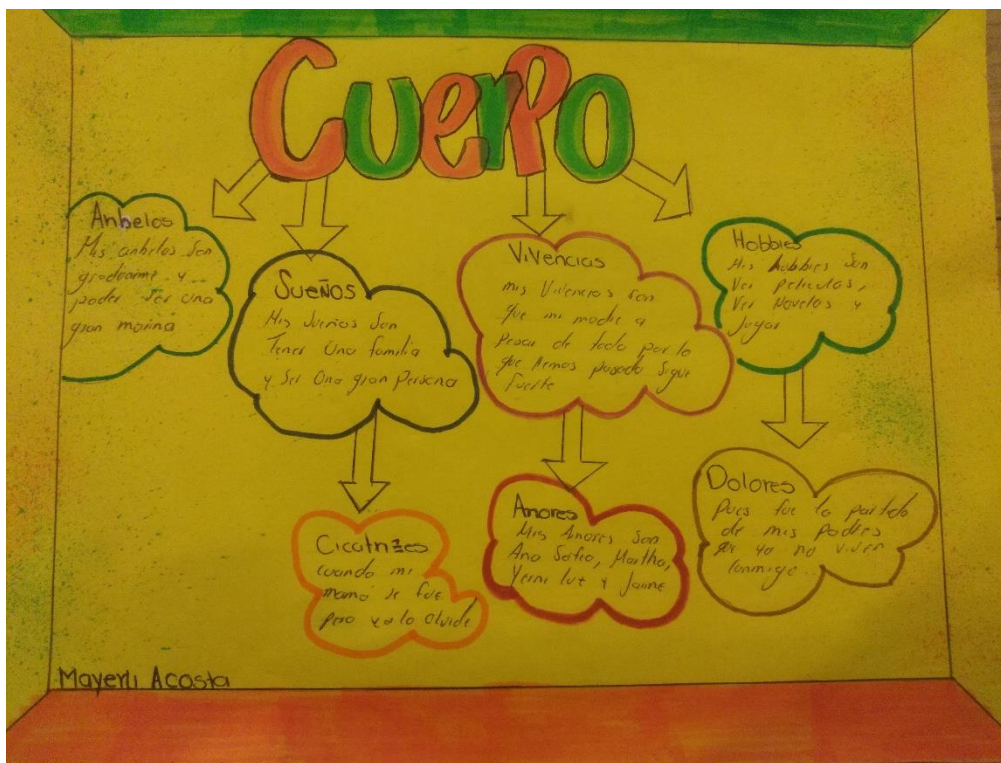 Cuerpo
Anhelos
Mis anhelos son
graduarme y
poder ser una
gran marina
Sueños
Mis sueños son
Tener Una familia
y Ser Una gran Persona
Vivencias
mis Vivencias son
que mi madre a
Pesar de todo por lo
que hemos pasado sigue
fuerte
Hobbies
Mis hobbies son
Ver peliculas,
Ver Novelas y
Jugar
Cicatrizes
cuando mi
mama se fue
pero ya lo olvide
Amores
Mis Amores son
Ana Sofia, Martha,
Yerni luz y Jaime
Dolores
Pues fue la partida
de mis padres
que ya no viven
conmigo...
Mayerli Acosta